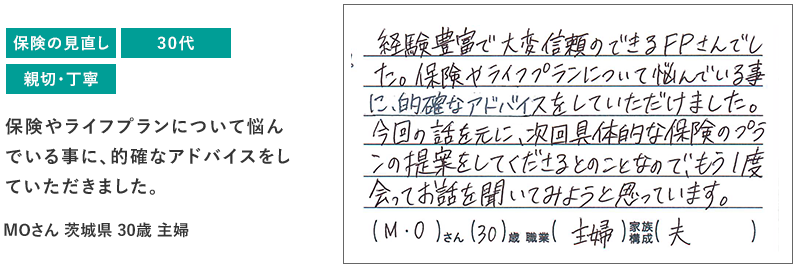 保険の見直し 30代
親切・丁寧
保険やライフプランについて悩ん
でいる事に、的確なアドバイスをし
ていただきました。
MOさん 茨城県 30歳 主婦
経験豊富で大変信頼のできるFPさんでし
た。保険やライフプランについて悩んでいる事
に、的確なアドバイスをしていただけました。
今回の話を元に、次回具体的な保険のプラ
ンの提案をしてくださるとのことなので、もう1度
会ってお話を聞いてみようと思っています。
(M・O)さん(30)歳 職業(主婦)家族構成(夫)